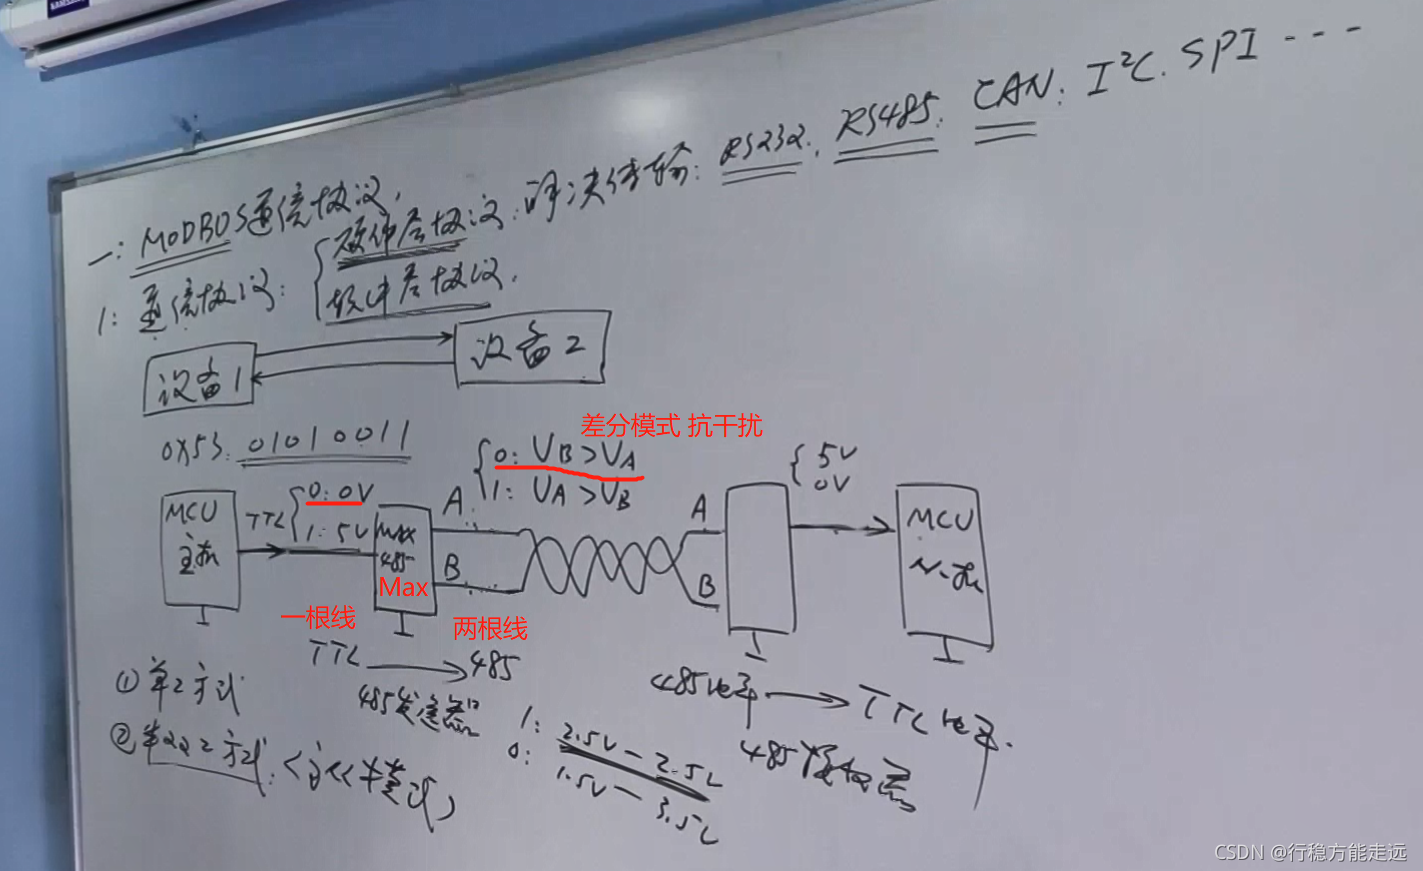 一: MODBUS通信协议,
1: 通信协议: { 硬件层协议: 解决传输: RS232. RS485. CAN: I²C. SPI ----
软件层协议.
设备1
设备2
差分模式 抗干扰
0X53: 01010011
0: VB>VA
1: UA>UB
5V
0V
MCU
主机
TTL
0: 0V
1: 5V
MAX
485
Max
A
B
A
B
MCU
从机
一根线
两根线
TTL → 485
485发送器
485电平 → TTL电平.
485接收器
① 单工方式
② 半双工方式.
1: 2.5V - 2.5V
0: 1.5V - 3.5V
CSDN @行稳方能走远